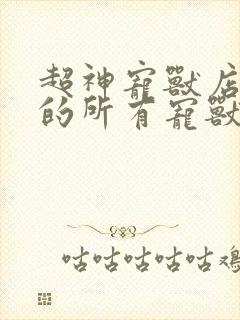 超神寵獸店
的所有寵獸
咕咕咕咕咕雞